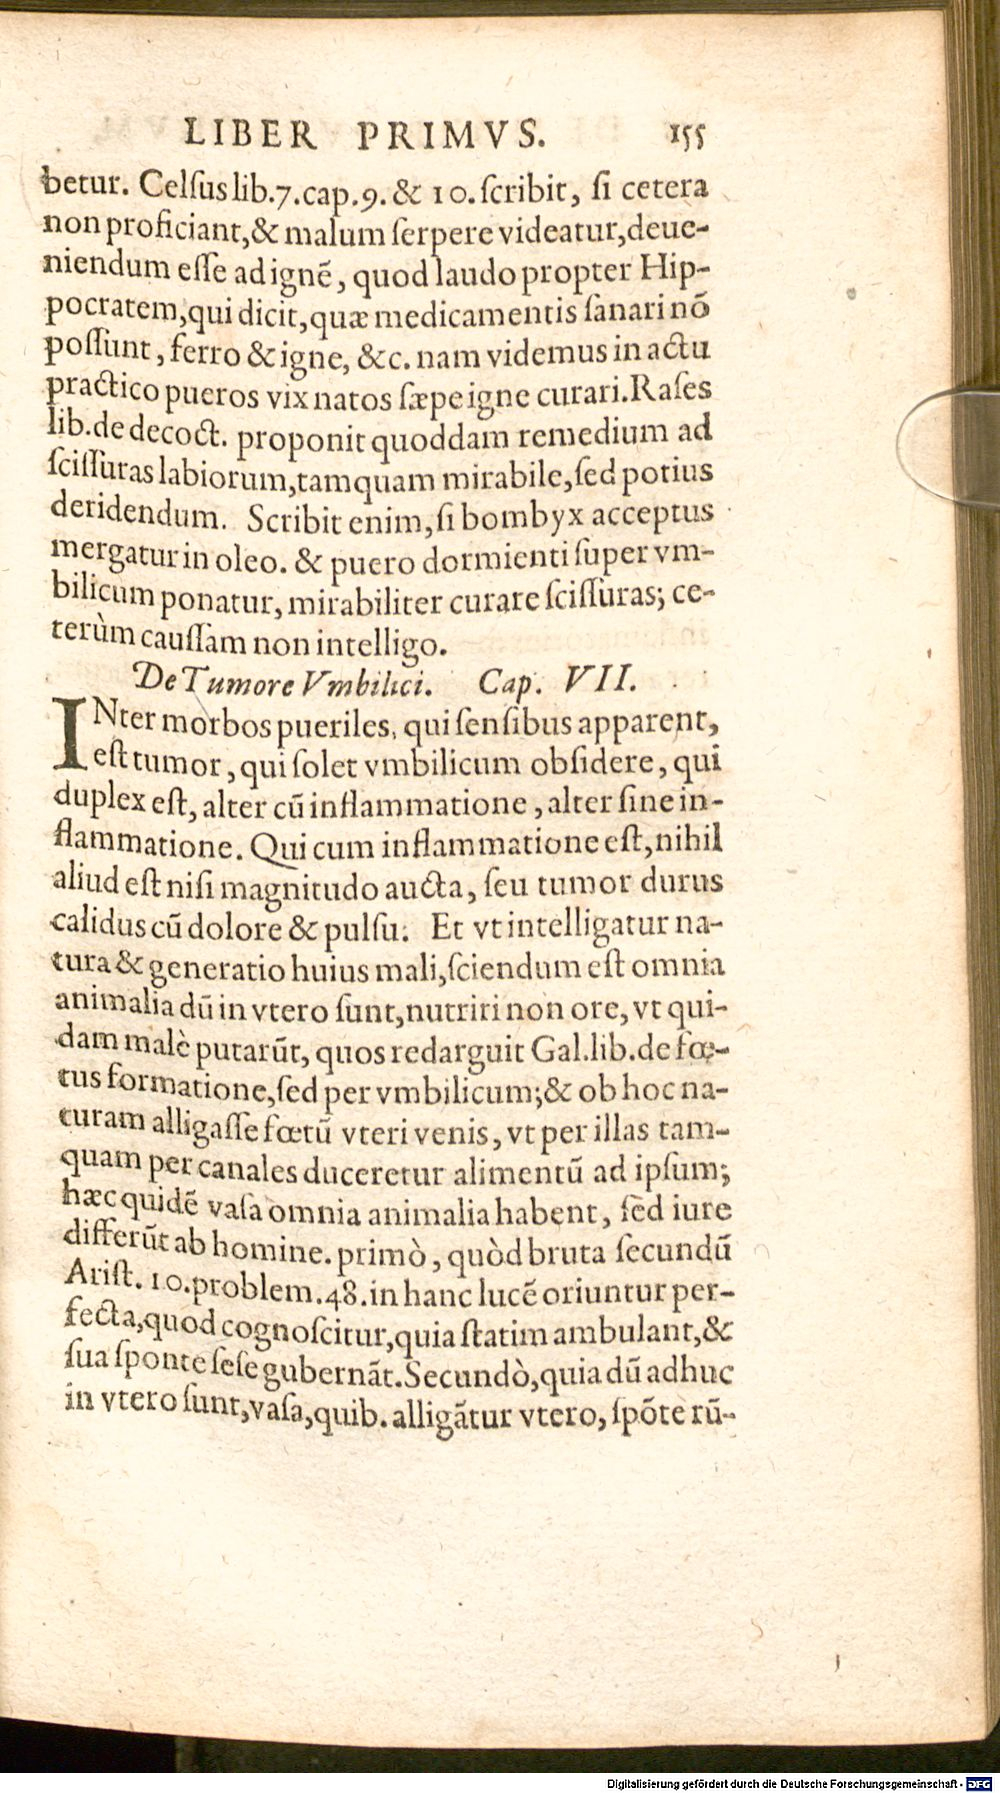 LIBER PRIMVS. 155
betur. Celſus lib.7.cap.9.& 10.ſcribit, ſi cetera
non proficiant,& malum ſerpere videatur,deue-
niendum eſſe ad ignē, quod laudo propter Hip-
pocratem,qui dicit,quæ medicamentis ſanari nō
poſſunt, ferro & igne, &c. nam videmus in actu
practico pueros vix natos ſæpe igne curari.Raſes
lib.de decoct. proponit quoddam remedium ad
ſciſſuras labiorum,tamquam mirabile,ſed potius
deridendum. Scribit enim,ſi bombyx acceptus
mergatur in oleo. & puero dormienti ſuper vm-
bilicum ponatur, mirabiliter curare ſciſſuras; ce-
terùm cauſſam non intelligo.
De Tumore Vmbilici. Cap. VII.
INter morbos pueriles, qui ſenſibus apparent,
eſt tumor, qui ſolet vmbilicum obſidere, qui
duplex eſt, alter cū inflammatione, alter ſine in-
flammatione. Qui cum inflammatione eſt, nihil
aliud eſt niſi magnitudo aucta, ſeu tumor durus
calidus cū dolore & pulſu. Et vt intelligatur na-
tura & generatio huius mali,ſciendum eſt omnia
animalia dū in vtero ſunt,nutriri non ore, vt qui-
dam malè putarūt, quos redarguit Gal.lib.de fœ-
tus formatione,ſed per vmbilicum;& ob hoc na-
turam alligaſſe fœtū vteri venis, vt per illas tam-
quam per canales duceretur alimentū ad ipſum;
hæc quidē vaſa omnia animalia habent, ſed iure
differūt ab homine. primò, quòd bruta ſecundū
Ariſt. 10.problem.48.in hanc lucē oriuntur per-
fecta,quod cognoſcitur,quia ſtatim ambulant,&
ſua ſponte ſeſe gubernāt.Secundò,quia dū adhuc
in vtero ſunt,vaſa,quib. alligātur vtero, ſpōte rū-
Digitalisierung gefördert durch die Deutsche Forschungsgemeinschaft - DFG